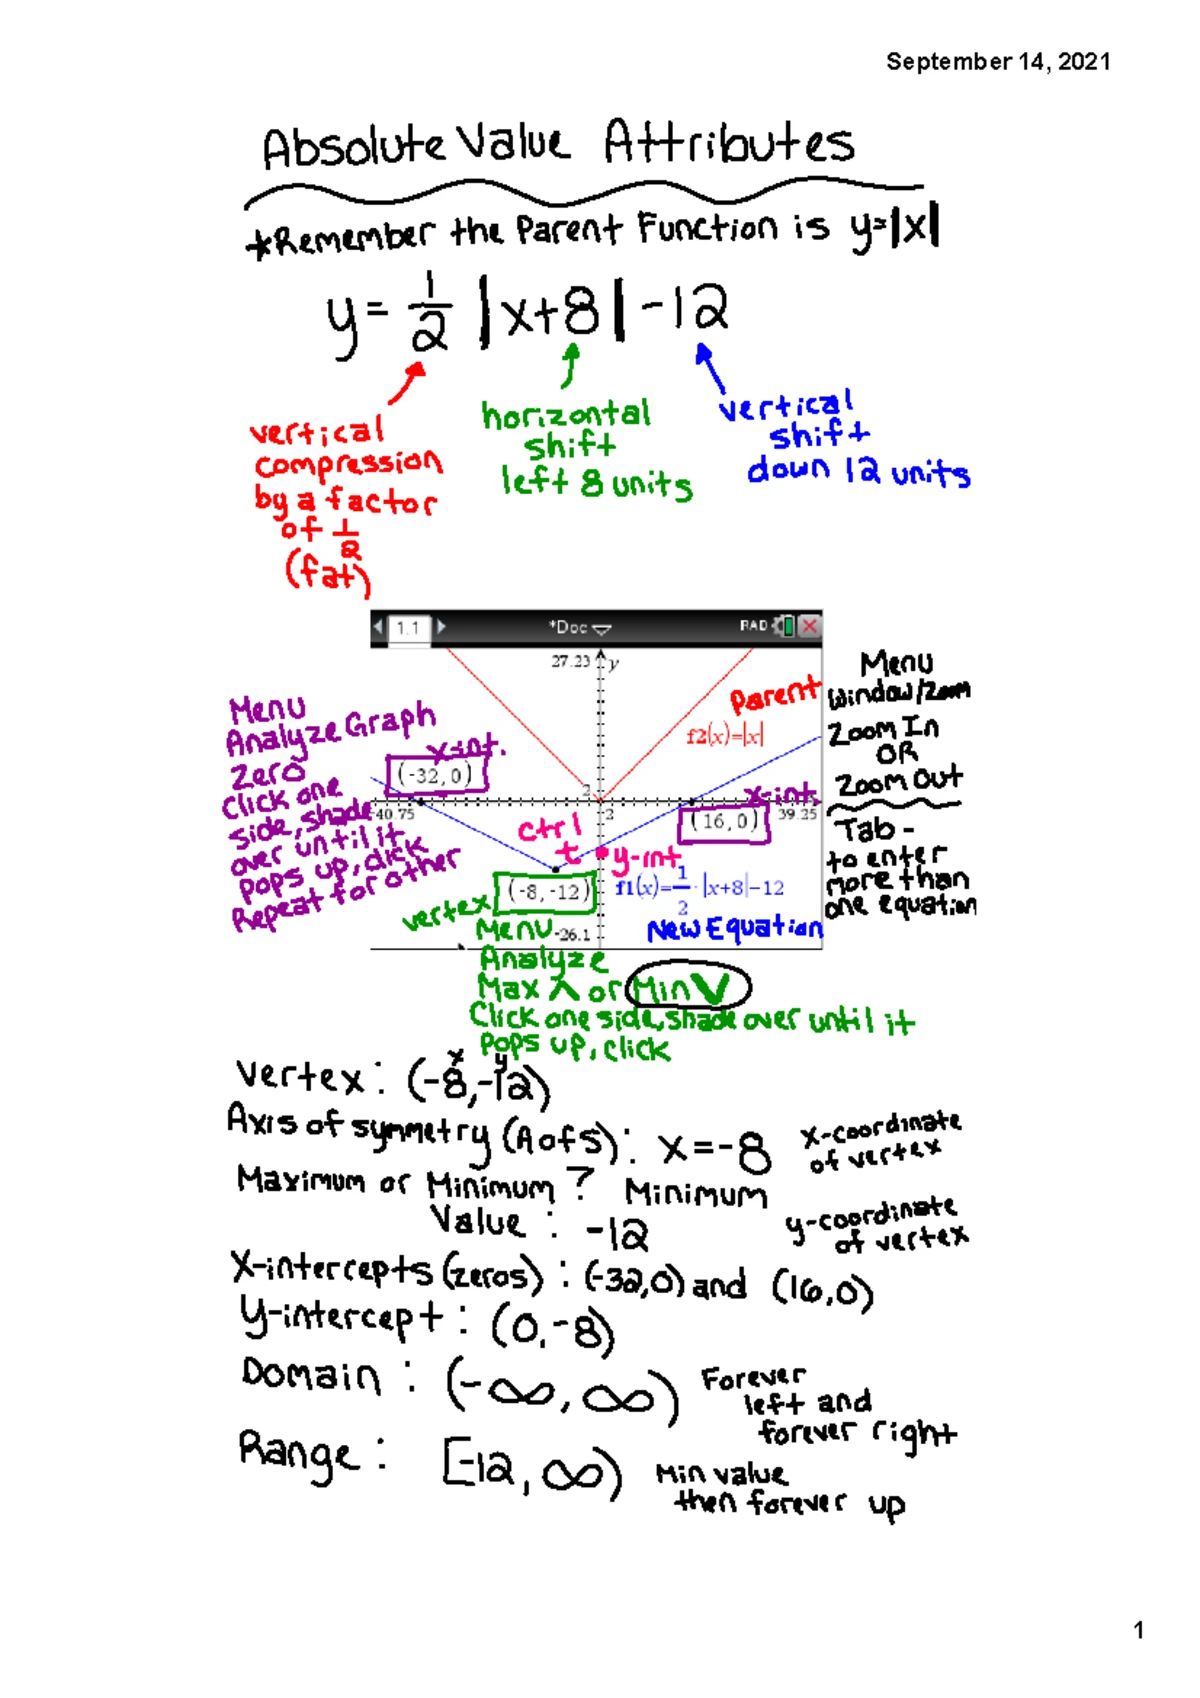 September 14, 2021
Absolute Value Attributes
*Remember the Parent Function is y=|x|
y= 1/2 |x+8| -12
vertical
compression
by a factor
of 1/2
(fat)
horizontal
shift
left 8 units
vertical
shift
down 12 units
1.1
*Doc
RAD
27.23
y
Parent
f2(x)=|x|
Menu
Window/Zoom
Zoom In
OR
Zoom Out
Tab -
to enter
more than
one equation
Menu
Analyze Graph
Zero
Click one
side, shade
over until it
pops up, click
Repeat for other
x-int.
(-32,0)
2
-40.75
2
x-int.
(16,0)
39.25
ctrl
t
y-int
f1(x)=1/2·|x+8|-12
New Equation
(-8,-12)
vertex
-26.1
Menu
Analyze
Max Λ or Min V
Click one side, shade over until it
pops up, click
x y
Vertex: (-8,-12)
Axis of symmetry (AofS): x=-8
x-coordinate
of vertex
Maximum or Minimum? Minimum
Value: -12
y-coordinate
of vertex
X-intercepts (zeros): (-32,0) and (16,0)
y-intercept: (0,-8)
Domain: (-∞,∞)
Forever
left and
forever right
Range: [-12,∞)
Min value
then forever up
1